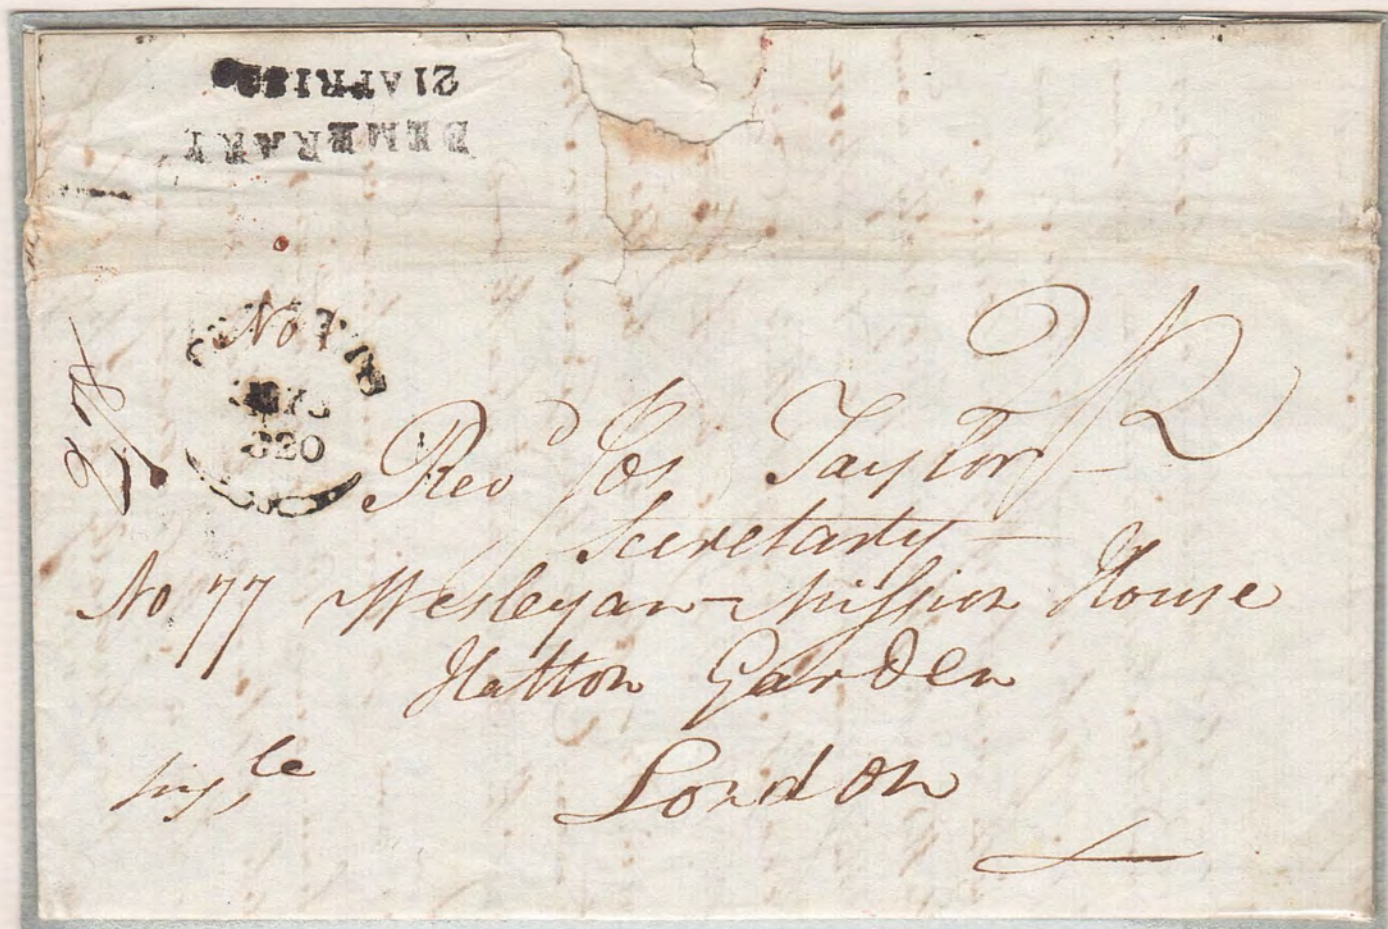 DEMERARY
21APR1820
No 1
820
2/2
Revd Jos Taylor
Secretary
No 77 Wesleyan Mission House
Hatton Garden
London
Single